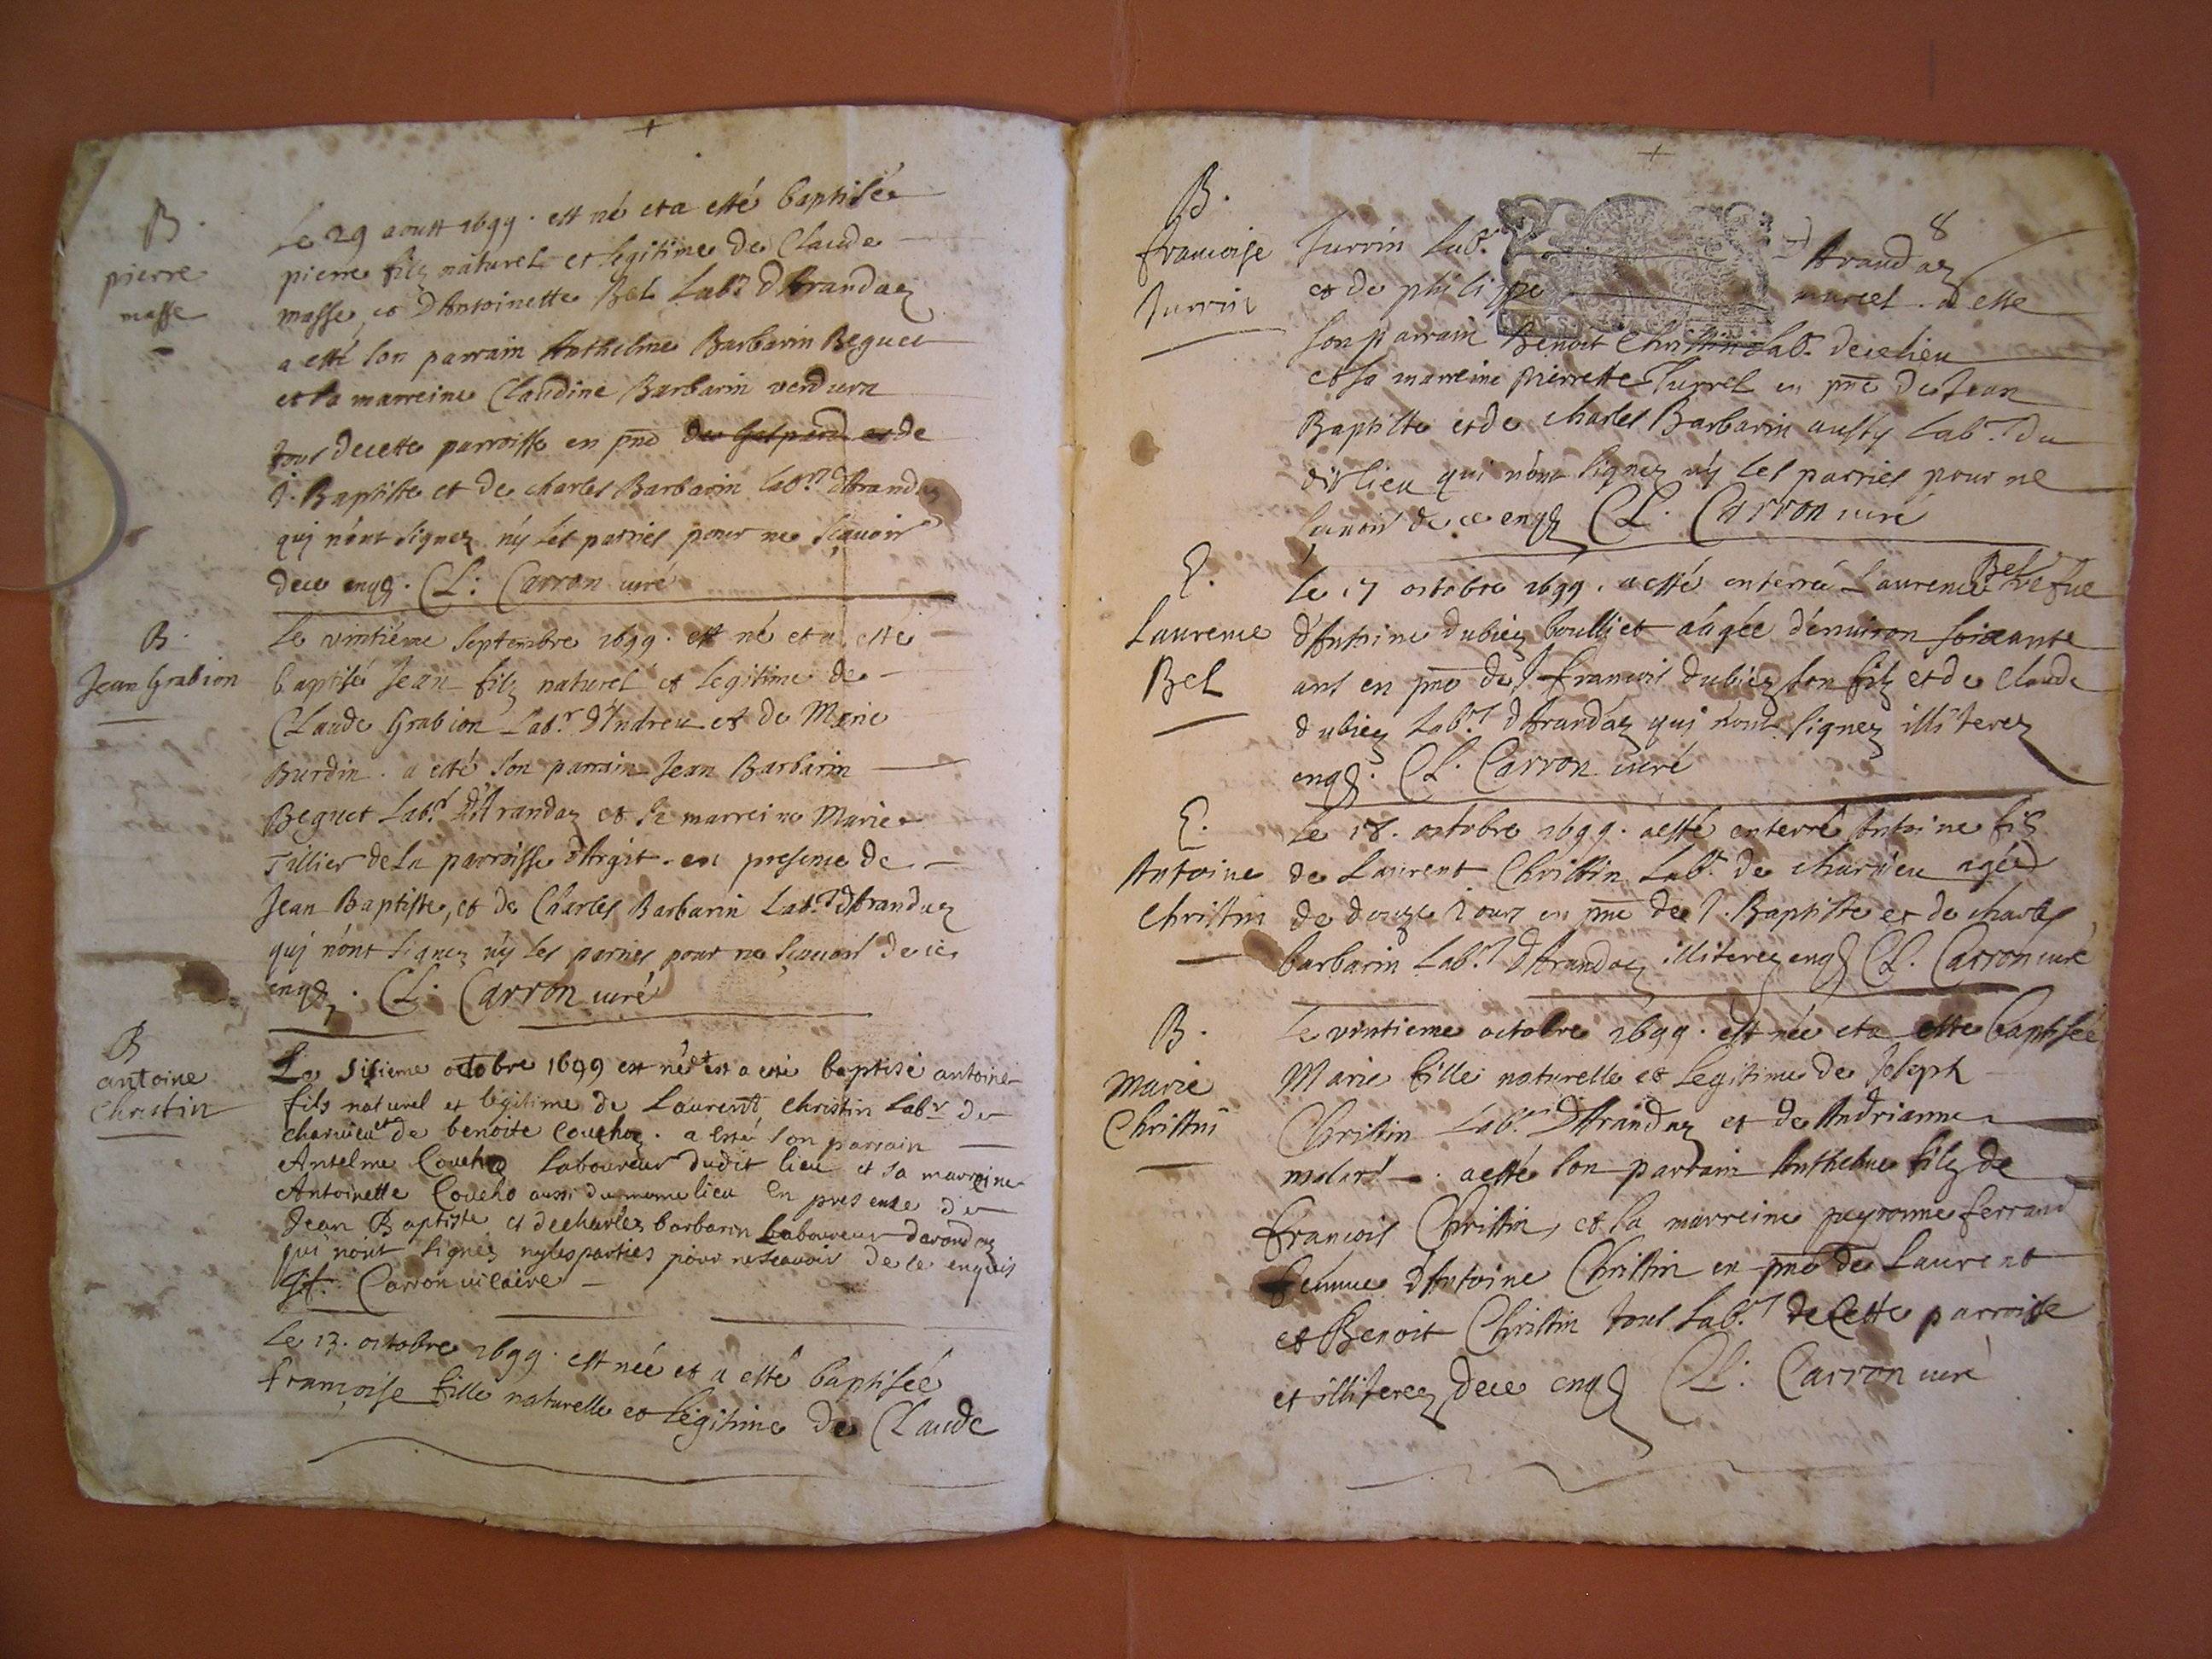 B.
pierre
masse
Le 29 aoust 1699. est né et a esté baptisé
pierre filz naturel et legitime de Claude
masse et d'Antoinette Bel Labr. d'Arandaz
a esté son parrain Anthelme Barbarin Beguet
et la marreine Claudine Barbarin verdura
tous de cette parroisse en pnce et de
J. Baptiste et de charles Barbarin Labrs. d'Arandaz
qui n'ont signez ny les parties pour ne sçavoir
de ce enqs. CL: Carron curé
B.
Jean Grabion
Le vintiéme Septembre 1699. est né et a esté
baptisé Jean filz naturel et legitime de
Claude Grabion Labr. d'Indrieu et de Marie
Burdin. a esté son parrain Jean Barbarin
Beguet Labr. d'Arandaz et la marreine Marie
Tillier de la parroisse d'Argit. en presence de
Jean Baptiste, et de Charles Barbarin Labrs. d'Arandaz
qui n'ont signez ny les parties pour ne sçavoir de ce
enqs. CL: Carron curé
B
antoine
Christin
Le sisieme octobre 1699 est né et a esté baptisé antoine
fils naturel et legitime de Laurent Christin Labr. de
charvieu et de benoite Couchoz. a esté son parrain
Antelme Coucho Laboureur dudit lieu et sa marreine
Antoinette Coucho aussi du meme lieu En presence de
Jean Baptiste et de charles barbarin Laboureur d'arandaz
qui n'ont signés ny les parties pour ne scavoir de ce enquis
Carron vicaire
Le 13. octobre 1699. est née et a esté baptisée
françoise fille naturelle et legitime de Claude
8
B.
francoise
Jurrin
Jurrin Labr. d'Arandaz
et de philippe murcel. a esté
son parrain Benoit Christin Labr. de ce lieu
et la marreine pierrette Jurrel en pnce de Jean
Baptiste et de charles Barbarin aussy Labrs. du
dit lieu qui n'ont signez ny les parties pour ne
sçavoir de ce enqs CL. Carron curé
E.
Laurence
Bel
Le 17 octobre 1699. a esté enterré Laurence Bel vefue
d'Antoine dubiez boulliet aagée d'enuiron soixante
ans en pnce de J. francois dubiez son filz et de Claude
dubiez Labrs. d'Arandaz qui n'ont signez illiterez
enqs. CL. Carron curé
E.
Antoine
Christin
Le 18. octobre 1699. a esté enterré Antoine fils
de Laurent Christin Labr. de charvieu agée
de douze Jours en pnce de J. Baptiste et de charles
barbarin Labrs. d'Arandaz illiterez enqs CL. Carron curé
B.
Marie
Christin
Le vintieme octobre 1699. est née et a esté baptisée
Marie fille naturelle et legitime de Joseph
Christin Labr. d'Arandaz et de Andrianne
molard. a esté son parrain Anthelme filz de
francois Christin, et la marreine peyronne ferrand
femme d'Antoine Christin en pnce de Laurent
et Benoit Christin tous Labrs. de Cette parroisse
et illiterez de ce enqs CL: Carron curé